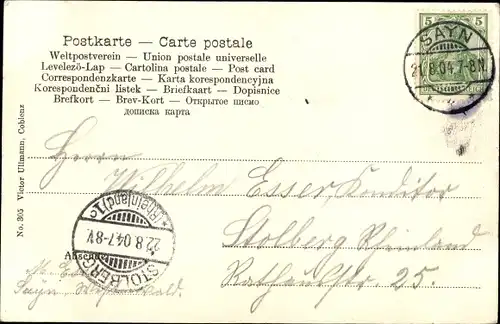 Postkarte — Carte postale
Weltpostverein — Union postale universelle
Levelező-Lap — Cartolina postale — Post card
Correspondenzkarte — Karta korespondencyjna
Korespondenční listek — Briefkaart — Dopisnice
Brefkort — Brev-Kort — Открытое писмо
дописка карта
5 5
SAYN
21.8.04.7-8N.
No. 305 Victor Ullmann, Coblenz
Herrn
Wilhelm Esser, Konditor
Stolberg Rheinland
Rathausstr. 25.
STOLBERG (Rheinland)
22.8.04.7-8V.
Absender
Sayn